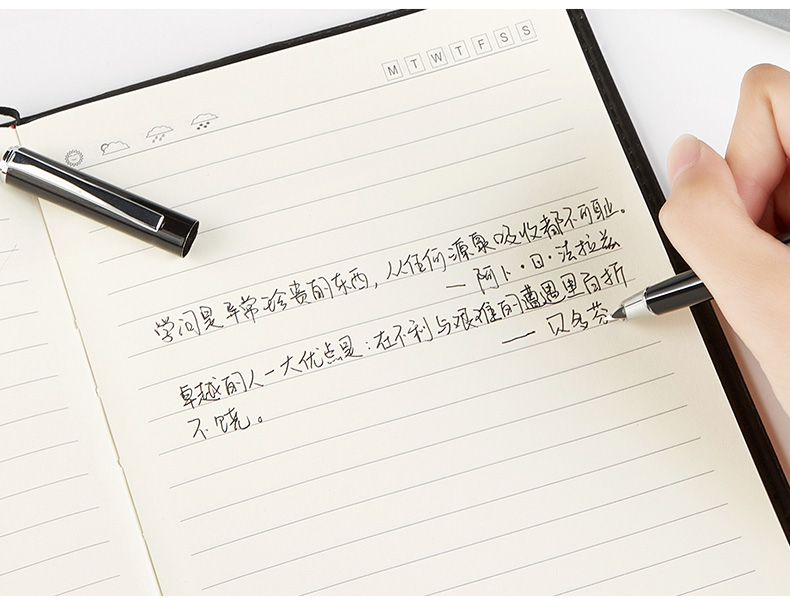 M T W T F S S
学问是异常珍贵的东西，从任何源泉吸收都不可耻。
— 阿卜·日·法拉兹
卓越的人一大优点是：在不利与艰难的遭遇里百折
不饶。
— 贝多芬